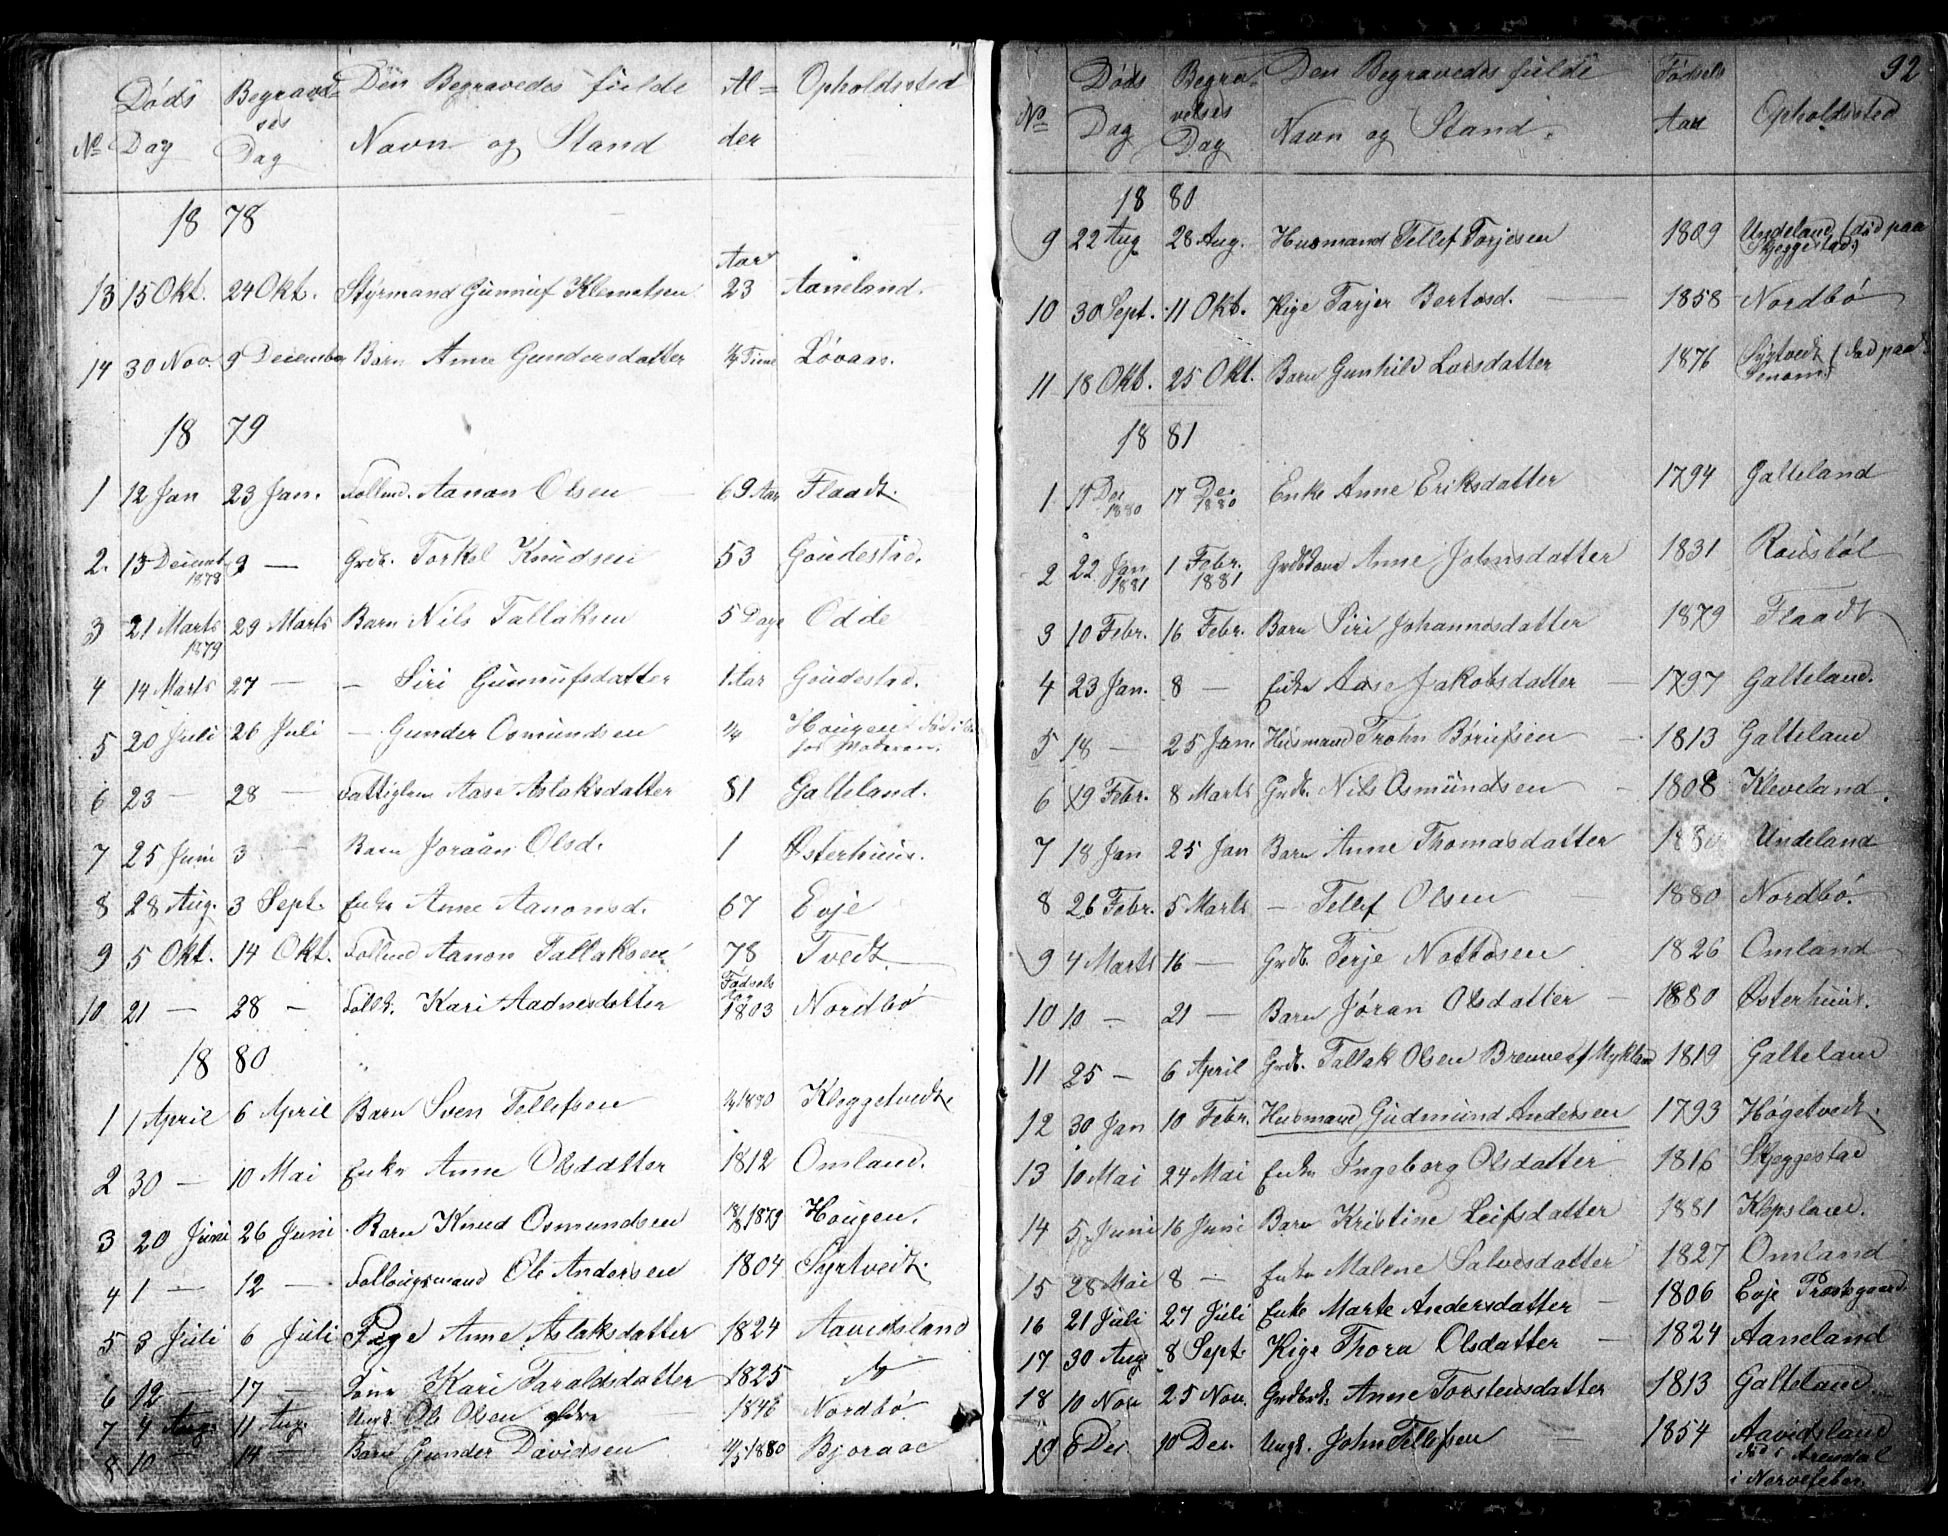 No Døds Dag Begravelses Dag Den Begravedes fulde Navn og Stand Alder Opholdssted
1878
13 15 Okt. 24 Okt. Styrmand Gunnuf Klemetsen Aar 23 Aaneland.
14 30 Nov. 9 December Barn Anne Gundersdatter Time Løvaas.
1879
1 12 Jan 23 Jan. Aanon Olsen 69 Aar Flaadt.
2. 13 Decemb 1878 9 — Grdb. Torkel Knudsen 53 Goudestad.
3 21 Marts 1879 29 Marts Barn Nils Tallaksen 5 Dage Odde
4 14 Marts 27 — — Siri Gunnufsdatter 1 Aar Goudestad.
5 20 Juli 26 Juli — Gunder Osmundsen Hougen
6 23 — 28 — Aase Aslaksdatter 81 Galteland.
7 25 Juni 3 Barn Joraan Olsd. 1 Østerhuus.
8 28 Aug. 3 Sept. Enke Anne Aanonsd. 67 Evje
9 5 Okt. 14 Okt. Aanon Tallaksen 78 Tvedt
10 21 — 28 — Kari Aadnesdatter Fødsels 1803 Nordbø
1880
1 1 April 6 April Barn Sven Tellefsen 1880 Kleggetvedt
2 30 — 10 Mai Enke Anne Olsdatter 1812 Omland.
3 20 Juni 26 Juni Barn Knud Osmundsen 1879 Hougen.
4 1 — 12 — Ole Andersen 1804 Syrtvedt.
5 3 Juli 6 Juli Pige Anne Aslaksdatter 1824 Aavidsland
6 12 — 17 — Kari Taraldsdatter 1825
7 4 Aug. 11 Aug. Ungk. Ole Olsen ældre Nordbø.
8 10 — 14 — Barn Gunder Davidsen 1880 Bjoraae
92
No Døds Dag Begravelses Dag Den Begravedes fulde Navn og Stand. Fødsels Aar Opholdssted
1880
9 22 Aug 28 Aug. Husmand Tellef Torjesen 1809 Undeland (død paa Skjeggestad)
10 30 Sept. 11 Okt. Pige Tarjer Bertosd. — 1858 Nordbø
11 18 Okt. 25 Okt. Barn Gunhild Larsdatter 1876 Syrtvedt (død paa
1881
1 Dec 1880 17 Dec 1880 Enke Anne Eriksdatter 1794 Galteland
2 22 Jan 1881 1 Febr. 1881 Anne Johnsdatter 1831 Rousbøl
3 10 Febr. 16 Febr. Barn Siri Johannesdatter 1879 Flaadt
4 23 Jan. 8 — Enke Aase Jakobsdatter — 1797 Galteland.
5 18 — 25 Jan. Husmand Trohn Børufsen — 1813 Galteland
6 19 Febr. 8 Marts Grdb. Nils Osmundsen — 1808 Kleveland.
7 18 Jan 25 Jan Barn Anne Thomasdatter Undeland
8 26 Febr. 5 Marts — Tellef Olsen — 1880 Nordbø.
9 4 Marts 16 — Grdb. Terje Nottosen 1826 Omland
10 10 — 21 — Barn Jøran Olsdatter — 1880 Østerhuus.
11 25 — 6 April Grdb. Tallak Olsen Brenne af Mykland 1819 Galteland
12 30 Jan 10 Febr. Husmand Gudmund Andersen 1793 Høgetvedt.
13 10 Mai 24 Mai Enke Ingeborg Olsdatter 1816 Skjeggestad
14 5 Juni 16 Juni Barn Kristine Leifsdatter 1881 Klepsland.
15 28 Mai 8 — Enke Malene Salvesdatter 1827 Omland
16 21 Juli 27 Juli Enke Marte Andersdatter — 1806 Evje Præstegaard
17 30 Aug 8 Sept. Pige Thora Olsdatter — 1824 Aaneland
18 10 Nov 25 Nov. Anne Torstensdatter 1813 Galteland
19 6 Dec 10 Dec. Ungk. John Tellefsen 1854 Aavidsland
død i Arendal
i Nervefeber.